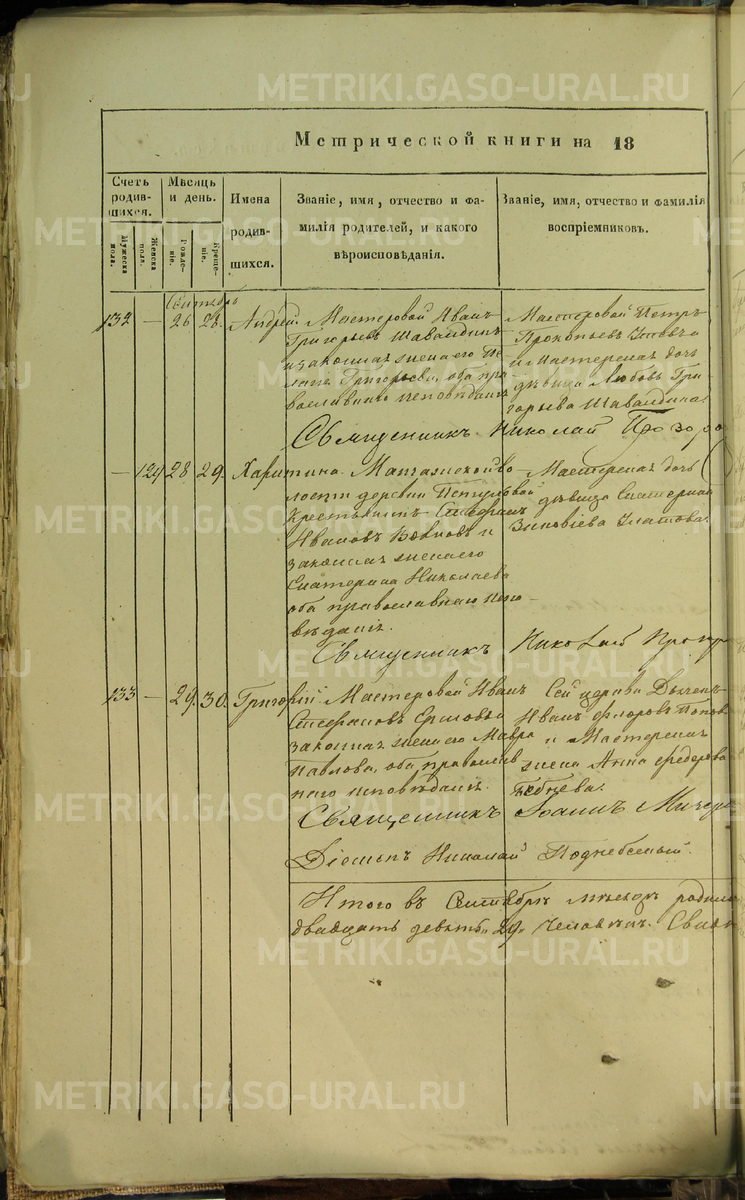 METRIKI.GASO-URAL.RU
Метрической книги на 18
Счетъ родив- шихся.
Мужеска пола.
Женска пола.
Мѣсяцъ и день.
Рожде- ніе.
Креще- ніе.
Имена родив- шихся.
Званіе, имя, отчество и фа-
милія родителей, и какого
вѣроисповѣданія.
Званіе, имя, отчество и фамилія
воспріемниковъ.
Сентябрь
132 — 26 28. Андрей
Мастеровой Иванъ
Григорьевъ Шавандинъ
и законная жена его Пе-
лагія Григорьева, оба пра-
вославнаго исповѣданія
Мастеровой Петръ
Прокопьевъ
и Мастерская дочь
дѣвица Любовь Гри-
горьева Шавандина.
Священникъ Николай
— 124 28 29. Харитина
волости деревни
Крестьянинъ
Ивановъ и
законная жена его
Екатерина Николаева
оба православнаго испо-
вѣданія.
Мастерская дочь
дѣвица Екатерина
Зиновіева
Священникъ Николай
133 — 29. 30. Григорій
Мастеровой Иванъ
Стефановъ
законная жена его Мавра
Павлова, оба православ
наго исповѣданія.
Сей церкви Дьячекъ
Иванъ Флоровъ Поповъ
и Мастерская
жена Анна Федорова
Священникъ Іоаннъ
Діаконъ Николай Поднебесный.
Итого въ Сентябрѣ мѣсяцѣ родилось
двадцать девять „29„ человѣкъ.